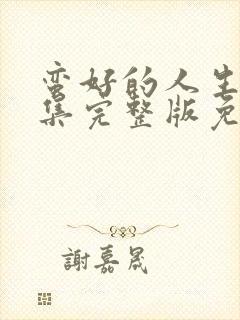 蛮好的人生
集完整版免
謝嘉晟